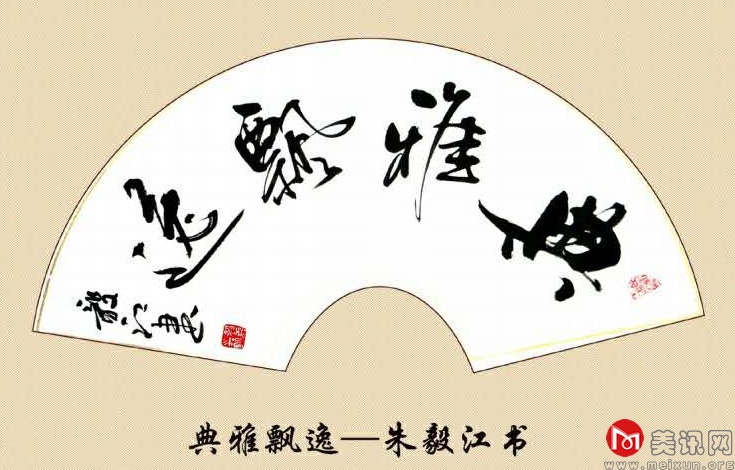 典雅飘逸
典雅飘逸—朱毅江书
美讯网
www.meixun.org